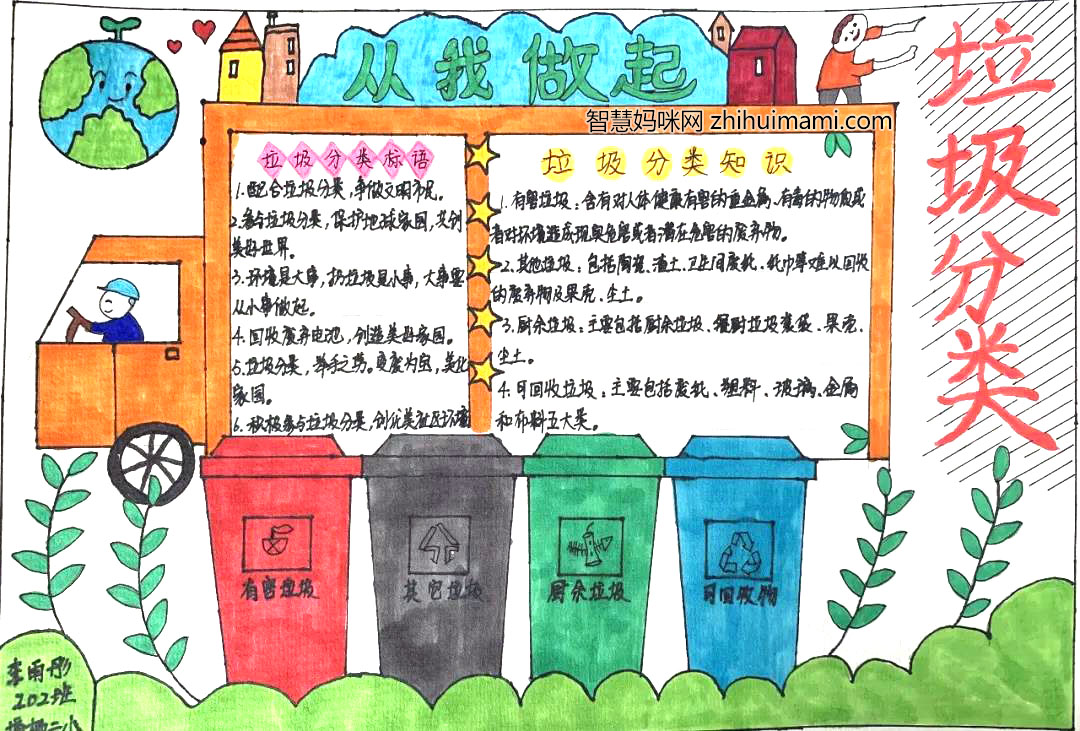 从我做起
智慧妈咪网 zhihuimami.com
垃圾分类
垃圾分类标语
1.配合垃圾分类，争做文明市民。
2.参与垃圾分类，保护地球家园，共创
美好世界。
3.环境是大事，扔垃圾是小事，大事要
从小事做起。
4.回收废弃电池，创造美好家园。
5.垃圾分类，举手之劳。变废为宝，美化
家园。
6.积极参与垃圾分类，创优美社区环境
垃圾分类知识
1.有害垃圾：含有对人体健康有害的重金属、有毒的物质或
者对环境造成现实危害或者潜在危害的废弃物。
2.其他垃圾：包括陶瓷、渣土、卫生间废纸、纸巾等难以回收
的废弃物及果壳、尘土。
3.厨余垃圾：主要包括厨余垃圾、餐厨垃圾、果壳、
尘土。
4.可回收垃圾：主要包括废纸、塑料、玻璃、金属
和布料五大类。
有害垃圾
其它垃圾
厨余垃圾
可回收物
李雨彤
202班
二小